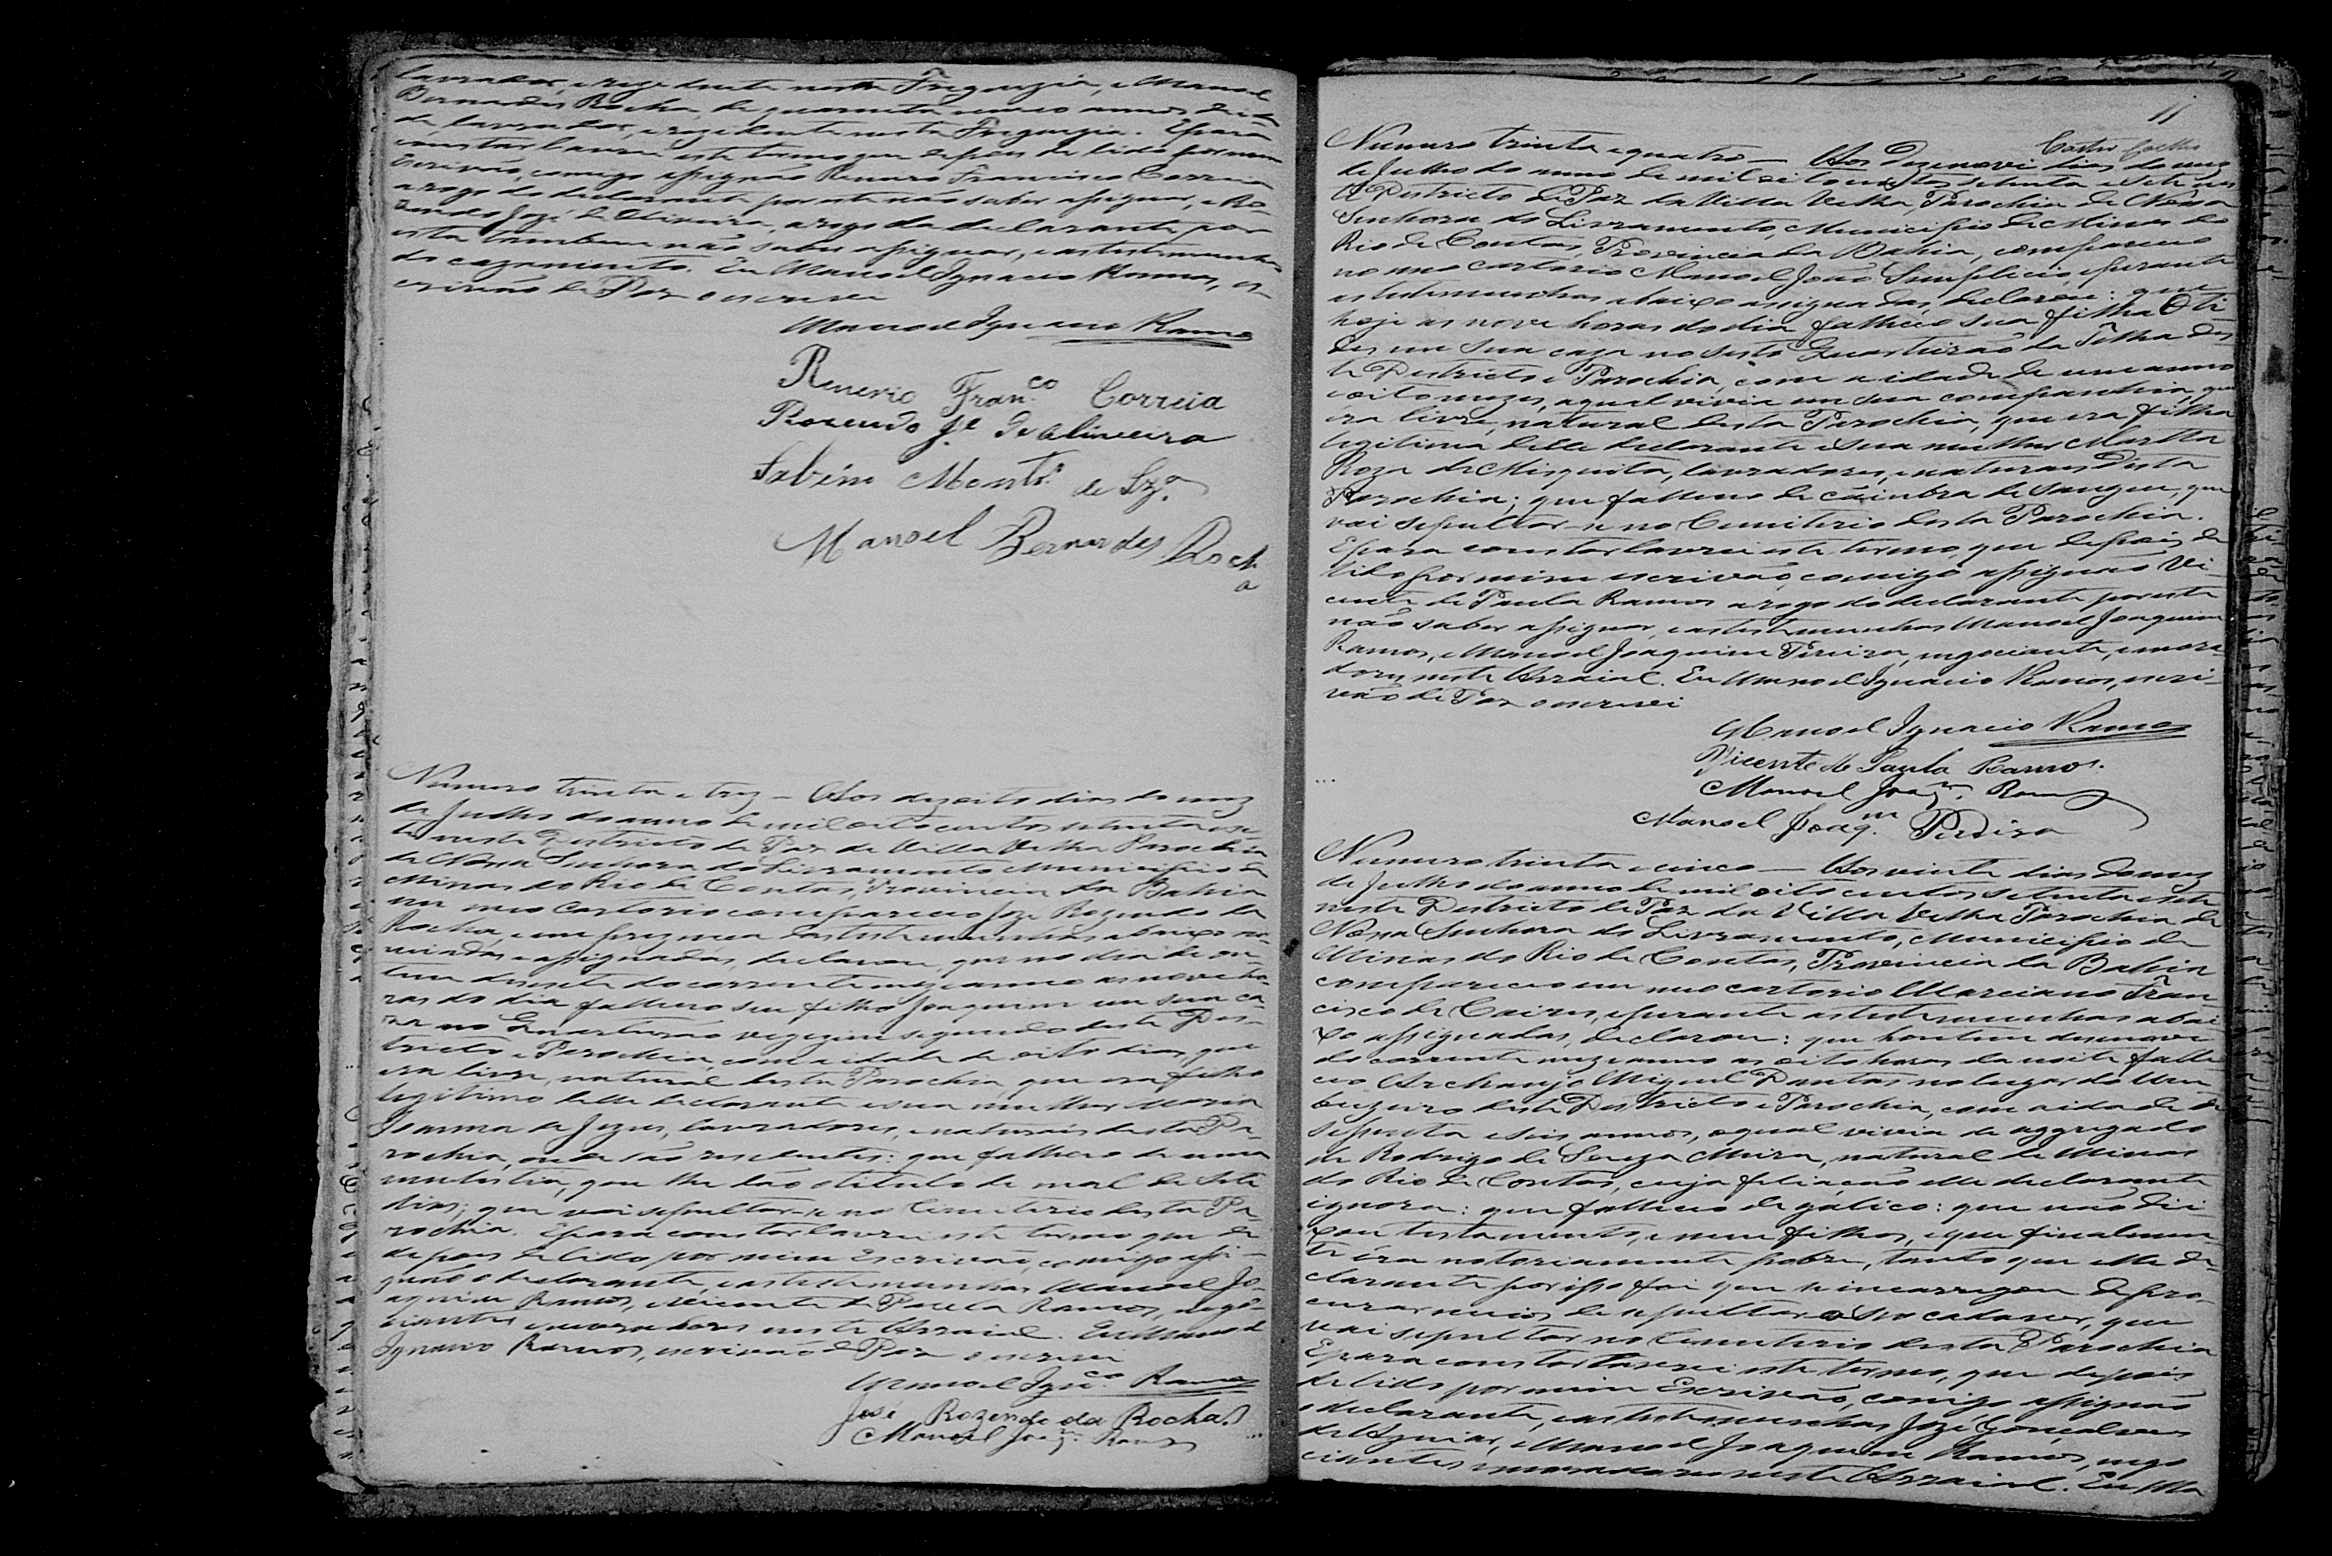 lavrador, e rezidente nesta Freguezia, e Manoel
Bernardes Rocha, de quarenta e cinco annos de ida
de, lavrador, e rezidente nesta Freguezia. E para
constar lavrei este termo que depois de lido por mim
Escrivão, comigo assignão Renerio Francisco Correia
a rogo do declarante por este não saber assignar, e Ro-
zendo Jozé de Oliveira, a rogo da declarante por
esta tambem não saber assignar, e as testemunhas
do cazamento. Eu Manoel Ignacio Ramos, es-
crivão de Paz o escrevi
Manoel Ignacio Ramos
Renerio Fran.co Correia
Rozendo Je de Oliveira
Sabino Mont.ro de Sza.
Manoel Bernardes Roch
a
Numero trinta e trez — Aos dezoito dias do mez
de Julho do anno de mil oito centos setenta e se-
te neste Districto de Paz da Villa Velha Parochia
de Nossa Senhora do Livramento Municipio de
Minas do Rio de Contas, Provincia da Bahia
em meo Cartorio compareceo Jozé Rozendo da
Rocha, e em prezença das testemunhas abaixo no-
miadas e assignadas, declarou, que no dia de on-
tem dezesete do corrente mez e anno as nove ho-
ras do dia falleceo seu filho Joaquim em sua ca-
za no Quarteirão vegezimo segundo deste Dis-
tricto e Parochia, com a idade de oito dias, que
era livre, natural desta Parochia, que era filho
legitimo delle declarante e sua mulher Maria
Joanna de Jezus, lavradores, e naturais desta Pa-
rochia, onde são rezidentes: que falleceo de uma
molestia, que lhe dão o titulo de mal de Sete
dias; que vai sepultar-se no Cimiterio desta Pa-
rochia. E para constar lavrei este termo que de
depois de lido por mim Escrivão, comigo assi-
gnão o declarante, e as testemunhas Manoel Jo-
aquim Ramos, e Vicente de Paula Ramos, nego-
ciantes e moradores neste Arraial. Eu Manoel
Ignacio Ramos, escrivão de Paz o escrevi
Manoel Ign.co Ramos
José Rozendo da Rocha
Manoel Joaq.m Ramos
11
Castro Coelho
Numero trinta e quatro — Aos dezenove dias do mez
de Julho do anno de mil oito centos setenta e sete, nes
te Districto de Paz da Villa Velha, Parochia de Nossa
Senhora do Livramento, Municipio de Minas do
Rio de Contas, Provincia da Bahia, compareceo
no meo cartorio Manoel João Simplicio, e perante
as testemunhas abaixo assignadas, declarou: que
hoje as nove horas do dia falleceo sua filha Oti-
des em sua caza no sesto Quarteirão da Telha des
te Districto e Parochia, com a idade de um anno
e oito mezes, a qual vivia em sua companhia, que
era livre, natural desta Parochia, que era filha
legitima delle declarante e sua mulher Martta
Roza de Misquita, lavradores, e naturaes desta
Parochia; que falleceo de câimbra de sangue, que
vai sepultar-se no Cemiterio desta Parochia.
E para constar lavrei este termo, que depois de
lido por mim escrivão, comigo assignão Vi-
cente de Paula Ramos a rogo do declarante por este
não saber assignar, e as testemunhas Manoel Joaquim
Ramos, e Manoel Joaquim Pereira, negociante, e mora
dores neste Arraial. Eu Manoel Ignacio Ramos, escri-
vão de Paz o escrevi
Manoel Ignacio Ramos
Vicente de Paula Ramos.
Manoel Joaq.m Ramos
Manoel Joaq.m Pereira
Numero trinta e cinco — Aos vinte dias do mez
de Julho do anno de mil oito centos setenta e sete
neste Districto de Paz da Villa Velha Parochia de
Nossa Senhora do Livramento, Municipio de
Minas do Rio de Contas, Provincia da Bahia
compareceo em meo cartorio Marciano Fran-
cisco de Caires, e perante as testemunhas abai
xo assignadas, declarou: que hontem dezenove
do corrente mez e anno as oito horas da noite falle
ceo Archanjo Miguel Dantas no lugar do Um
buzeiro deste Districto e Parochia, com a idade de
sessenta e seis annos, o qual vivia de aggregado
de Rodrigo de Souza Meira, natural de Minas
do Rio de Contas, cuja filiação elle declarante
ignora: que falleceo de gálico: que não dei-
xou testamento, e nem filhos, e que finalmen-
te éra notoriamente pobre, tanto que elle de-
clarante por isso foi que se incarregou de pro-
curar meios de sepultar o seo cadaver, que
vai sepultar no Cemiterio desta Parochia
E para constar lavrei este termo, que depois
de lido por mim Escrivão, comigo assignão
o declarante, e as testemunhas Jozé Gonçalves
de Aguiar, e Manoel Joaquim Ramos, nego
ciantes e moradores neste Arraial. Eu Ma